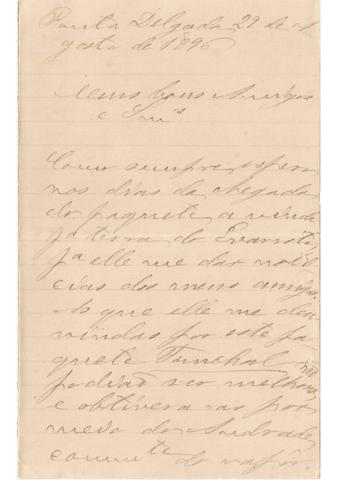 Ponta Delgada 29 de A
gosto de 1896
Meus bons Amigos
e Snr.s
Como sempre espero
nos dias da chegada
do paquete a vinda
pa terra do Evaristo,
pa elle me dar noti
cias dos meus amigos.
As que elle me deu
vindas por este pa
quete Funchal não
podião ser melhores
e obtivera-as por
meio do Andrade
comm.te do vapor.